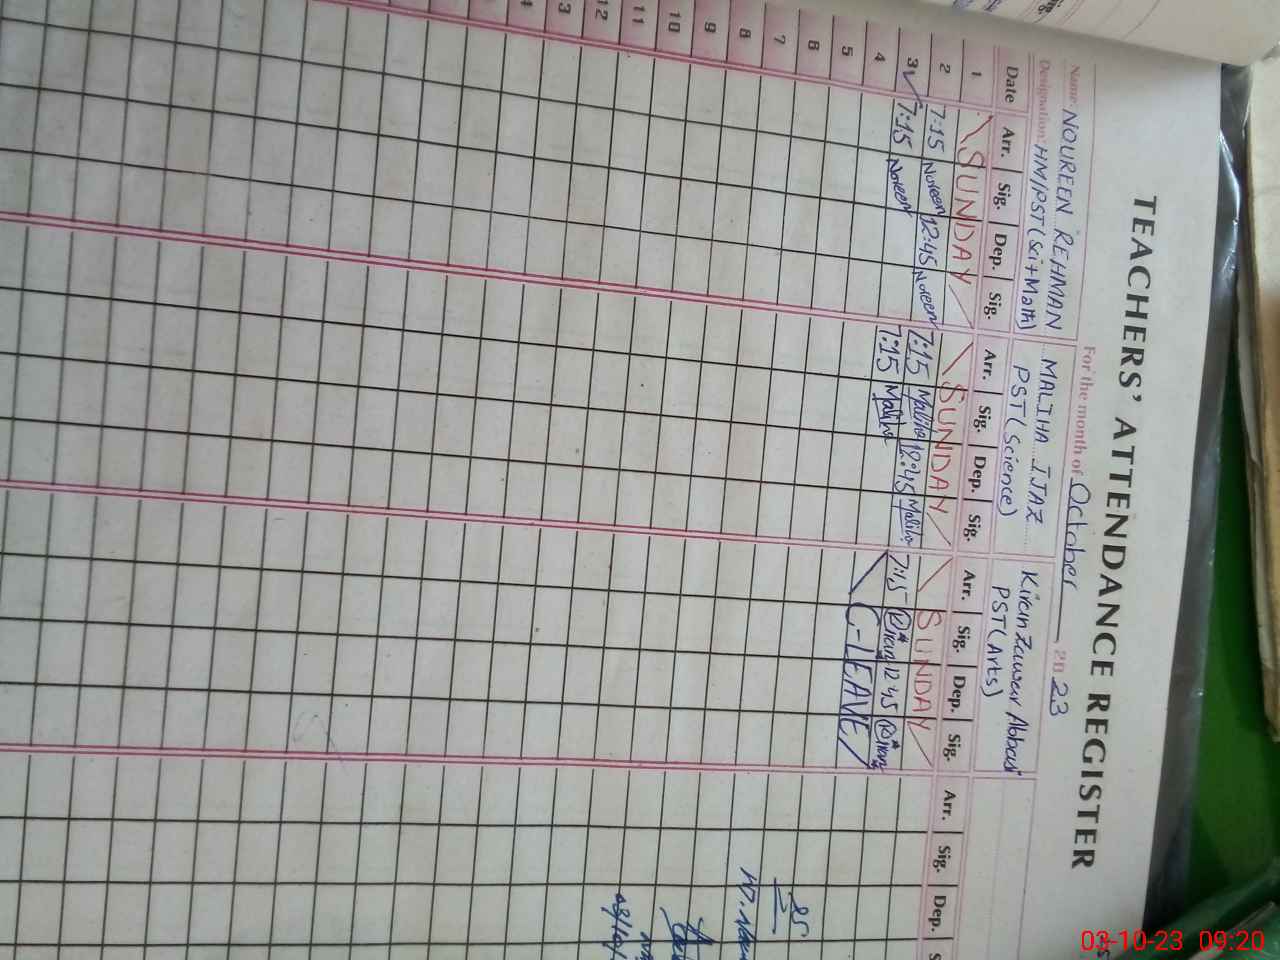 TEACHERS' ATTENDANCE REGISTER
For the month of October 2023
Name: NOUREEN REHMAN MALIHA IJAZ Kiran Zawar Abbasi
Designation: HM/PST (Sci+Math) PST (Science) PST (Arts)
Date Arr. Sig. Dep. Sig. Arr. Sig. Dep. Sig. Arr. Sig. Dep. Sig. Arr. Sig. Dep.
1 SUNDAY SUNDAY SUNDAY
2 7:15 Noreen 12:45 Noreen 7:15 Maliha 12:45 Maliha 7:15 12 45
3 7:15 Noreen 7:15 Maliha C-LEAVE
4
5
6
7
8
9
10
11
12
13
03-10-23 09:20